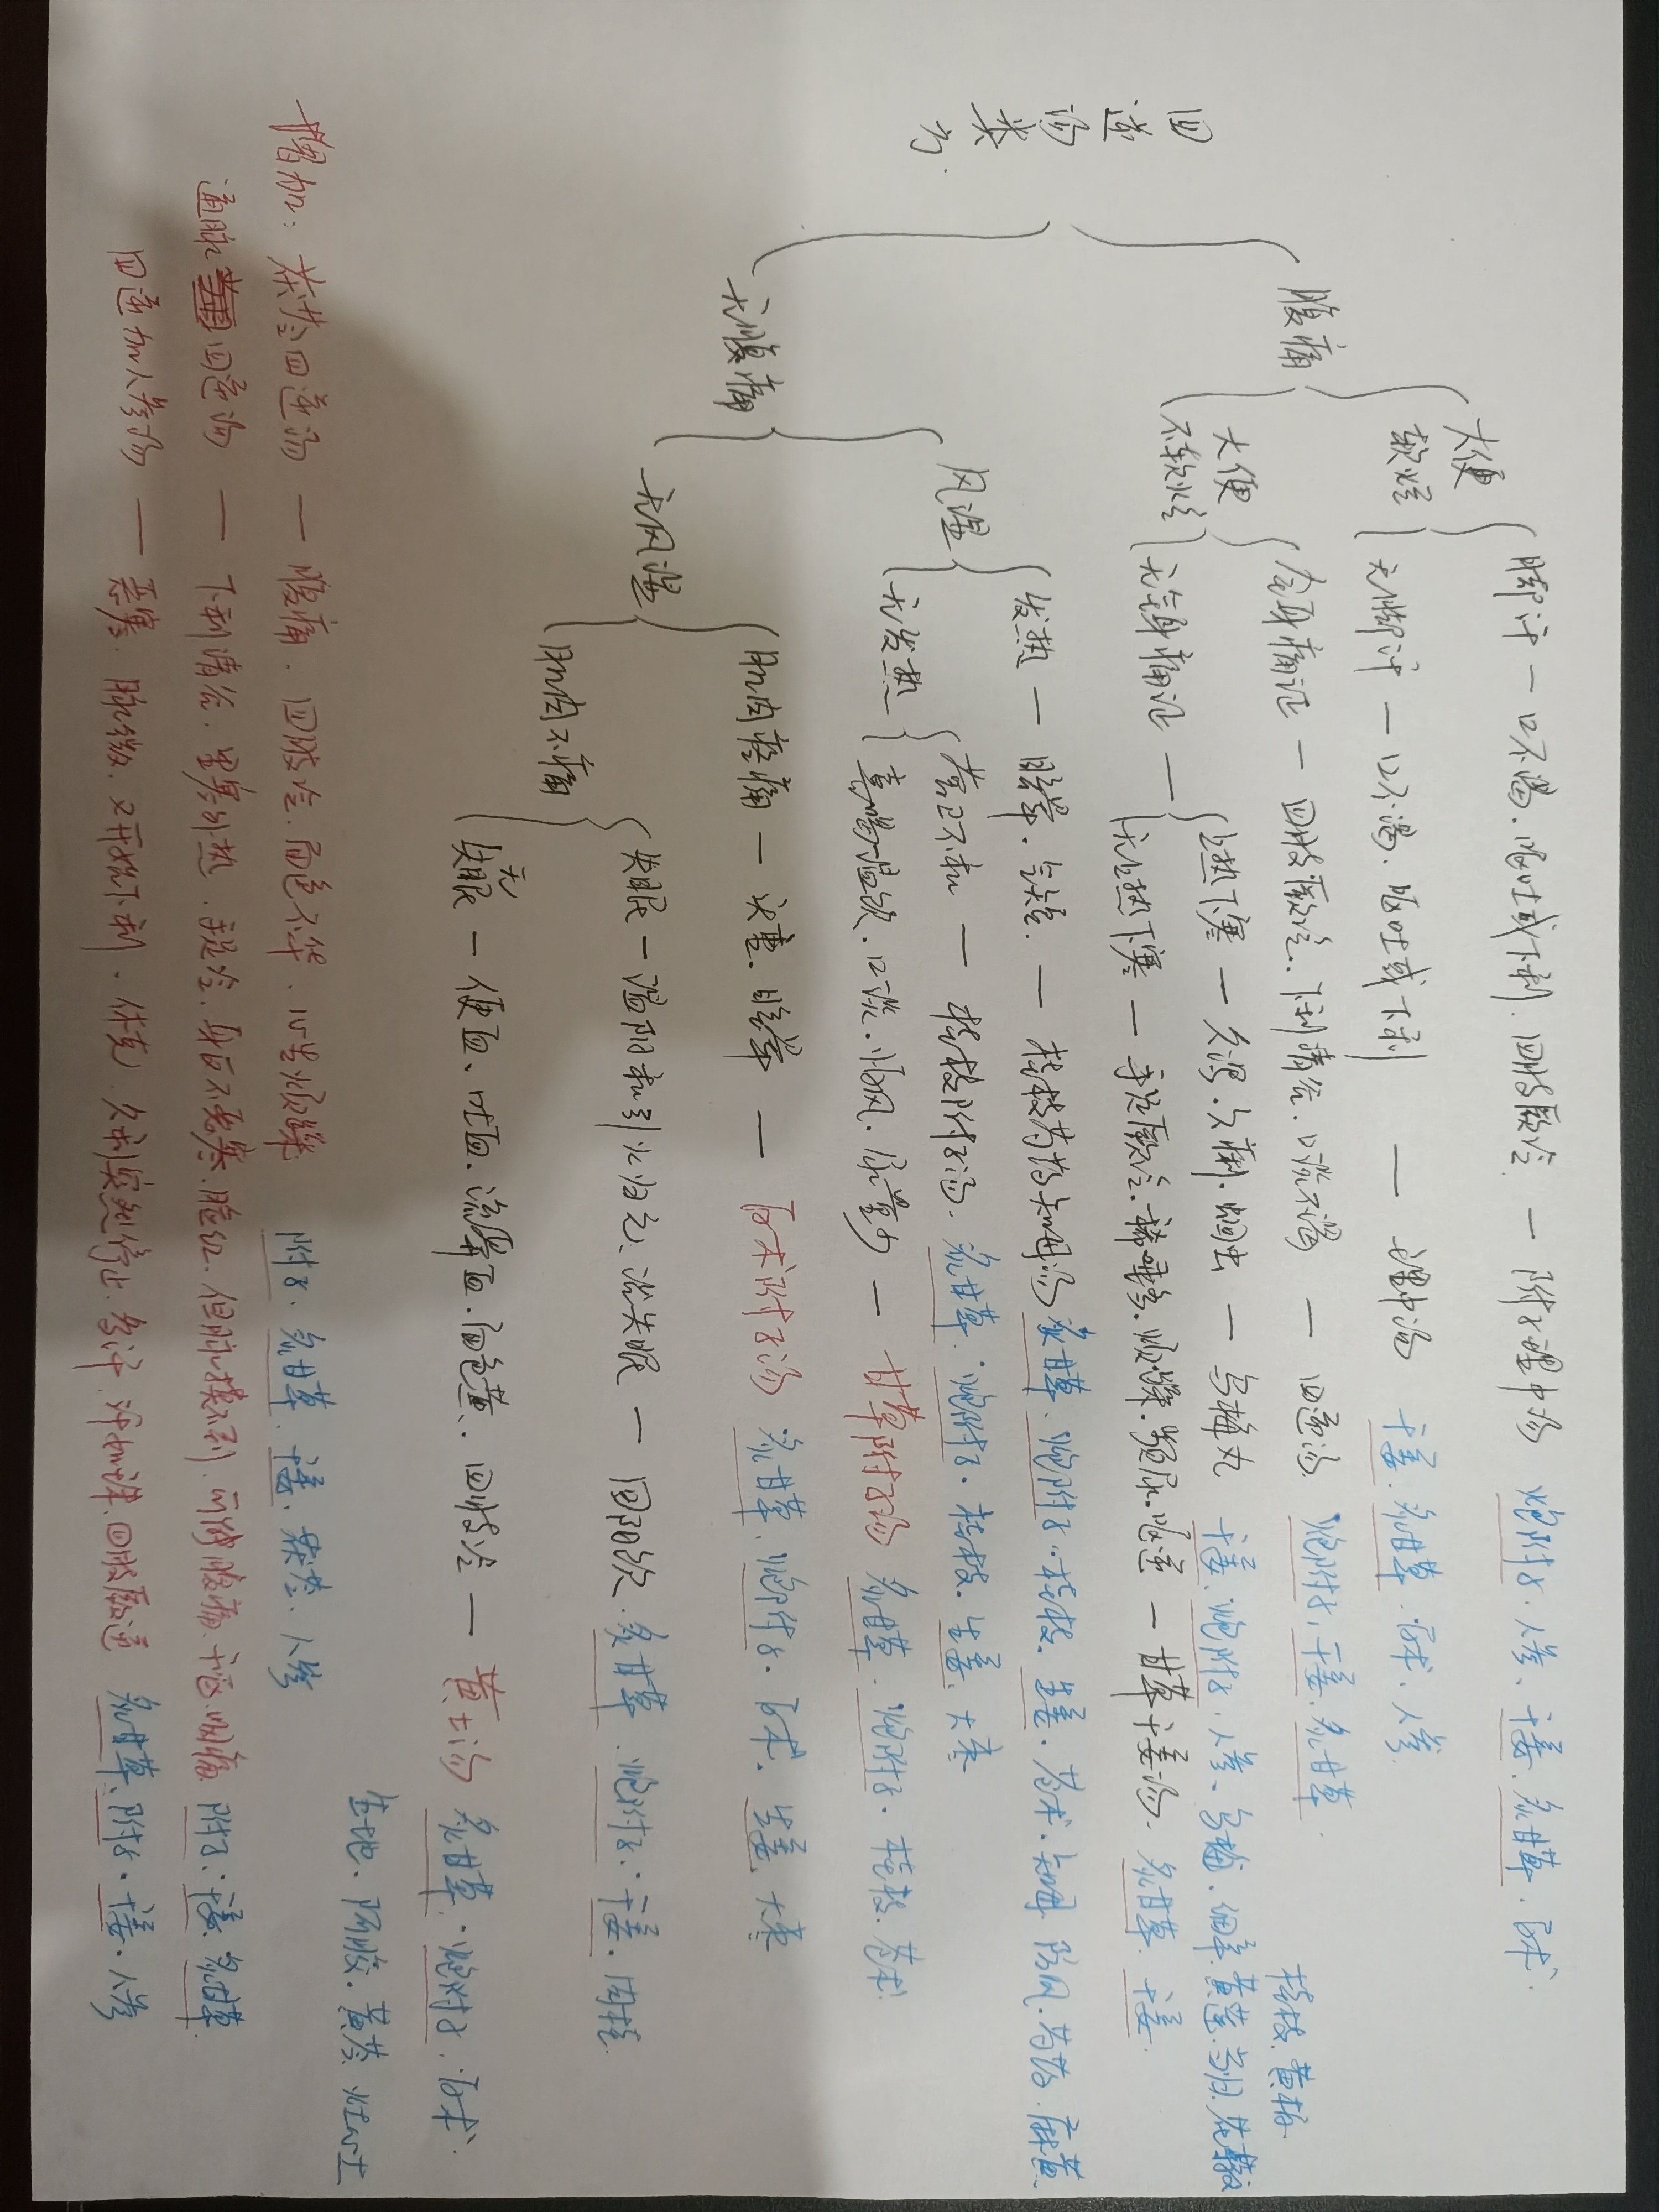 四逆汤类方.
腹痛
大便软烂
脚汗 — 口不渴、呕吐或下利、四肢厥冷 — 附子理中汤 炮附子、人参、干姜、炙甘草、白术.
无脚汗 — 口不渴、呕吐或下利 — 理中汤 干姜、炙甘草、白术、人参.
大便不软烂
全身痛证 — 四肢厥冷、下利清谷、口淡不渴 — 四逆汤 炮附子、干姜、炙甘草.
无全身痛证
上热下寒 — 久泻、久痢、蛔虫 — 乌梅丸 干姜、炮附子、人参、乌梅、细辛、黄连、当归、花椒
桂枝、黄柏
无上热下寒 — 手足厥冷、烦燥、呃逆 — 甘草干姜汤、炙甘草、干姜.
无腹痛
风湿
发热 — 眩晕、气短 — 桂枝芍药知母汤 炙甘草、炮附子、桂枝、生姜、苍术、知母、防风、芍药、麻黄
无发热
营卫不和 — 桂枝附子汤、炙甘草、炮附子、桂枝、生姜、大枣
喜喝温饮、口淡、恶风、尿量少 — 甘草附子汤 炙甘草、炮附子、桂枝、苍术
无风湿
肌肉疼痛 — 头重、眩晕 — 白术附子汤 炙甘草、炮附子、白术、生姜、大枣
肌肉不痛
失眠 — 温阳和引火归元、治失眠 — 回阳饮、炙甘草、炮附子、干姜、肉桂.
无失眠 — 便血、吐血、流鼻血、面色黄、四肢冷 — 黄土汤 炙甘草、炮附子、白术.
生地、阿胶、黄芩、灶心土
增加: 茯苓四逆汤 — 腹痛、四肢冷、面色不华、心里烦燥 附子、炙甘草、干姜、茯苓、人参
通脉四逆汤 — 下利清谷、里寒外热、手足冷、身反不恶寒、脸红、但脉摸不到、可伴腹痛、干呕、咽痛 附子、干姜、炙甘草.
四逆加人参汤 — 恶寒、脉微、又开始下利、休克、久利突然停止、冷汗、四肢厥逆 炙甘草、附子、干姜、人参